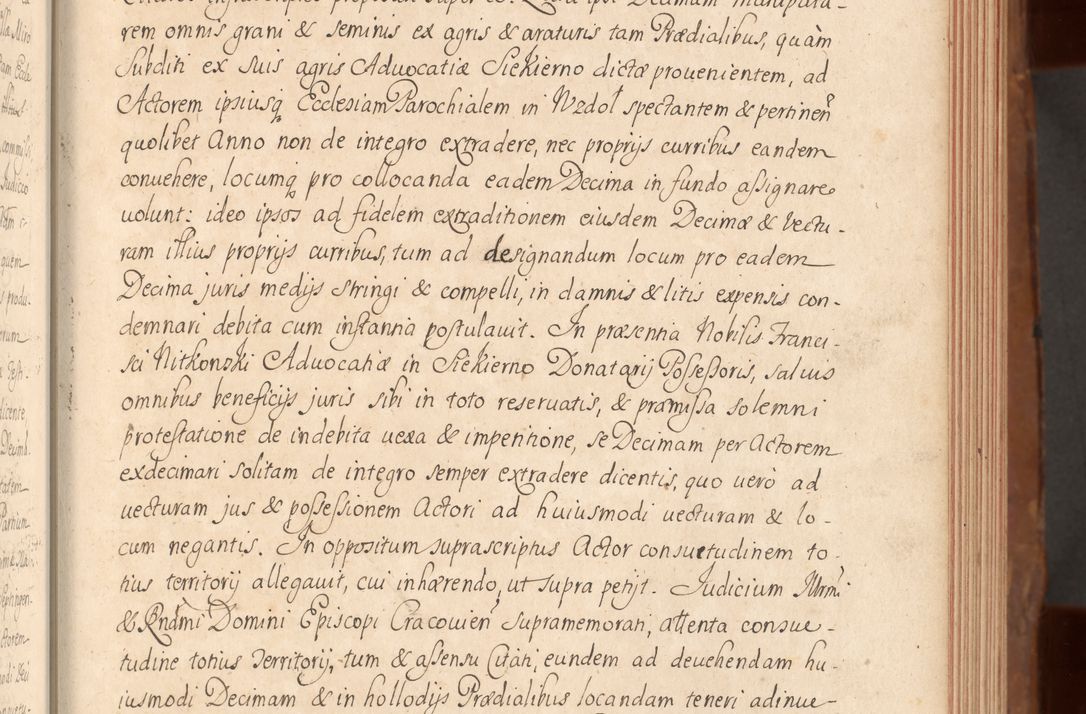 rem omnis grani & seminis ex agris & araturis tam Prædialibus, quàm
Subditi ex suis agris Advocatiæ Siekierno dictæ prouenientem, ad
Actorem ipsiusq Ecclesiam Parochialem in Wzdoł spectantem & pertinen
quolibet Anno non de integro extradere, nec proprijs curribus eandem
conuehere, locumq pro collocanda eadem Decima in fundo assignare
uolunt: ideo ipsos ad fidelem extraditionem eiusdem Decimæ & vectu-
ram illius proprijs curribus, tum ad designandum locum pro eadem
Decima juris medijs stringi & compelli, in damnis & litis expensis con-
demnari debita cum instantia postulauit. In præsentia Nobilis Franci-
sci Nitkonski Aduocatiæ in Siekierno Donatarij Possessoris, saluis
omnibus beneficijs juris sibi in toto reseruatis, & præmissa solemni
protestatione de indebita uexa & impentione, se Decimam per Actorem
exdecimari solitam de integro semper extradere dicentis, quo uerò ad
uecturam jus & possessionem Actori ad huiusmodi uecturam & lo-
cum negantis. In oppositum suprascriptus Actor consuetudinem to-
tius territorij allegauit, cui inhærendo, ut supra petijt. Judicium Illrmi
& Rndmi Domini Episcopi Cracouien supramemorati, attenta consue-
tudine totius Territorij, tum & assensu Citati, eundem ad deuehendam hu-
iusmodi Decimam & in hollodijs Prædialibus locandam teneri adinue-